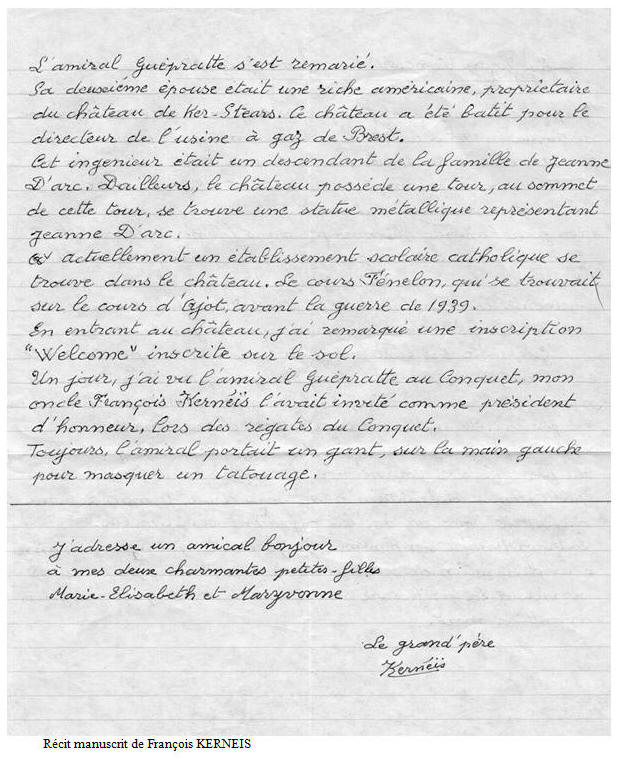 L'amiral Guèpratte s'est remarié.
Sa deuxiéme épouse était une riche américaine, propriètaire
du château de Ker-Stears. Ce château a été batit pour le
directeur de l'usine à gaz de Brest.
Cet ingenieur était un descendant de la famille de Jeanne
D'arc. Dailleurs, le château posséde une tour, au sommet
de cette tour, se trouve une statue métallique représentant
Jeanne D'arc.
actuellement un établissement scolaire catholique se
trouve dans le château. Le cours Fénelon, qui se trouvait
sur le cours d'Ajot, avant la guerre de 1939.
En entrant au château, j'ai remarqué une inscription
"Welcome" inscrite sur le sol.
Un jour, j'ai vu l'amiral Guèpratte au Conquet, mon
oncle François Kernéïs l'avait invité comme président
d'honneur, lors des régates du Conquet.
Toujours, l'amiral portait un gant, sur la main gauche
pour masquer un tatouage.
J'adresse un amical bonjour
à mes deux charmantes petites-filles
Marie-Elisabeth et Maryvonne
Le grand'pére
Kernéïs
Récit manuscrit de François KERNEIS